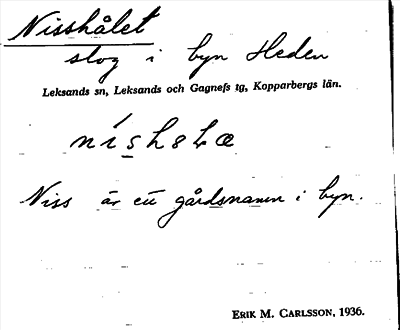 Nisshålet
slog i byn Heden
Leksands sn, Leksands och Gagnefs tg, Kopparbergs län.
Niss är ett gårdsnamn i byn.
ERIK M. CARLSSON, 1936.